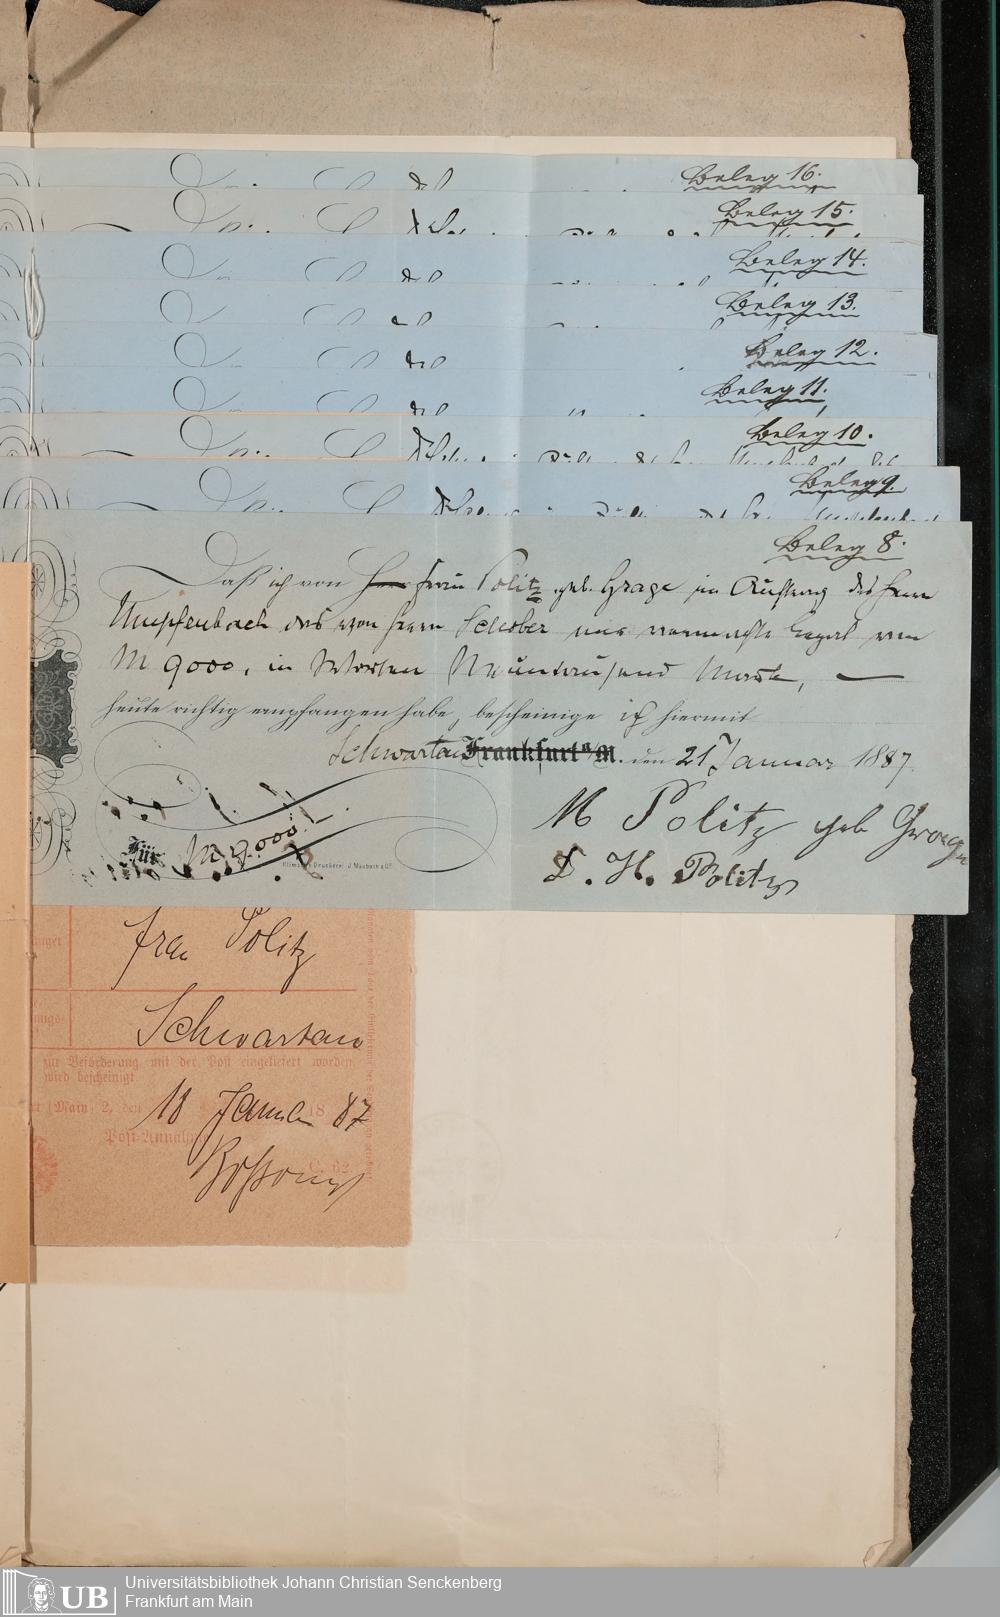 Beleg 16.
Beleg 15.
Beleg 14.
Beleg 13.
Beleg 12.
Beleg 11.
Beleg 10.
Beleg 9.
Beleg 8.
Daß ich von Frau Politz geb. Grage im Auftrag des Herrn
Umpfenbach das von Herrn Schober mir vermachte Legat von
M 9000, in Worten Neuntausend Mark,
heute richtig empfangen habe, bescheinige ich hiermit
Schwartau Frankfurt a/M. den 21 Januar 1887.
M Politz geb Grage
D. H. Politz
Für M 9.000.-
Frau Politz
Schwartau
zur Beförderung mit der Post eingeliefert worden,
wird bescheinigt.
(Main) 2, den 18 Januar 1887
Post-Annahme
C. 62
Universitätsbibliothek Johann Christian Senckenberg
Frankfurt am Main
UB